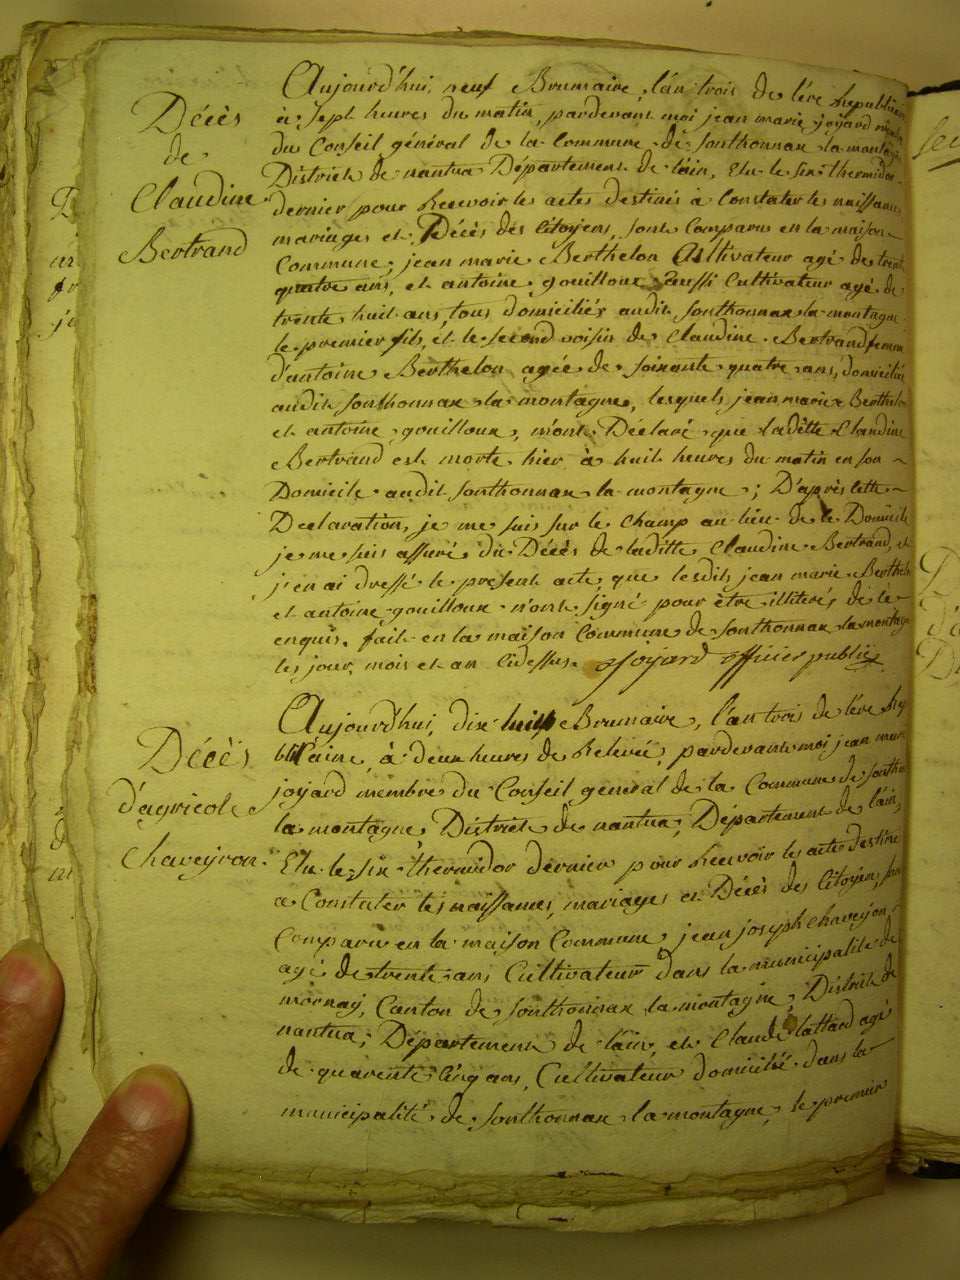 Décès
de
Claudine
Bertrand
Aujourd'hui, neuf Brumaire, l'an trois de l'ére Republicaine
à sept heures du matin, pardevant moi jean marie joyard membre
du Conseil général de la Commune de Sonthonnax la montagne
District de nantua Département de l'ain, Elu le six thermidor
dernier pour Recevoir les actes destinés à Constater les naissances
mariages et Décès des Citoyens, sont Comparus en la maison
Commune, jean marie Berthelon Cultivateur agé de trente
quatre ans, et antoine gouilloux aussi Cultivateur agé de
trente huit ans, tous domiciliés audit Sonthonnax la montagne
le premier fils, et le second voisin de Claudine Bertrand femme
d'antoine Berthelon agée de soixante quatre ans, domiciliée
audit Sonthonnax la montagne, lesquels jean marie Berthelon
et antoine gouilloux, m'ont Déclaré que ladette Claudine
Bertrand est morte hier à huit heures du matin en son
Domicile audit Sonthonnax la montagne; D'après cette
Declaration, je me suis sur le champ au lieu de ce Domicile
je me suis assuré du Décès de laditte Claudine Bertrand, et
j'en ai dressé le présent acte, que lesdits jean marie Berthelon
et antoine gouilloux n'ont signé pour être illiterés de ce
enquis. fait en la maison Commune de Sonthonnax la montagne
les jour, mois et an Cidessus. Joyard officier public
Décès
d'agricole
Chaveyron.
Aujourd'hui, dix huit Brumaire, l'an trois de l'ére Repu
blicaine, à deux heures de Relevée, pardevant moi jean marie
joyard membre du Conseil général de la Commune de Sonthonnax
la montagne, District de nantua, Département de l'ain,
Elu le six thermidor dernier pour Recevoir les actes destinés
a Constater les naissances, mariages et Décès des Citoyens, sont
Comparu en la maison Commune, jean joseph Chaveyron
agé de trente ans Cultivateur dans la municipalité de
mornay, Canton de Sonthonnax la montagne, District de
nantua, Département de l'ain, et Claude lattard agé
de quarente Cinq ans, Cultivateur domicilié dans la
municipalité de Sonthonnax la montagne, le premier